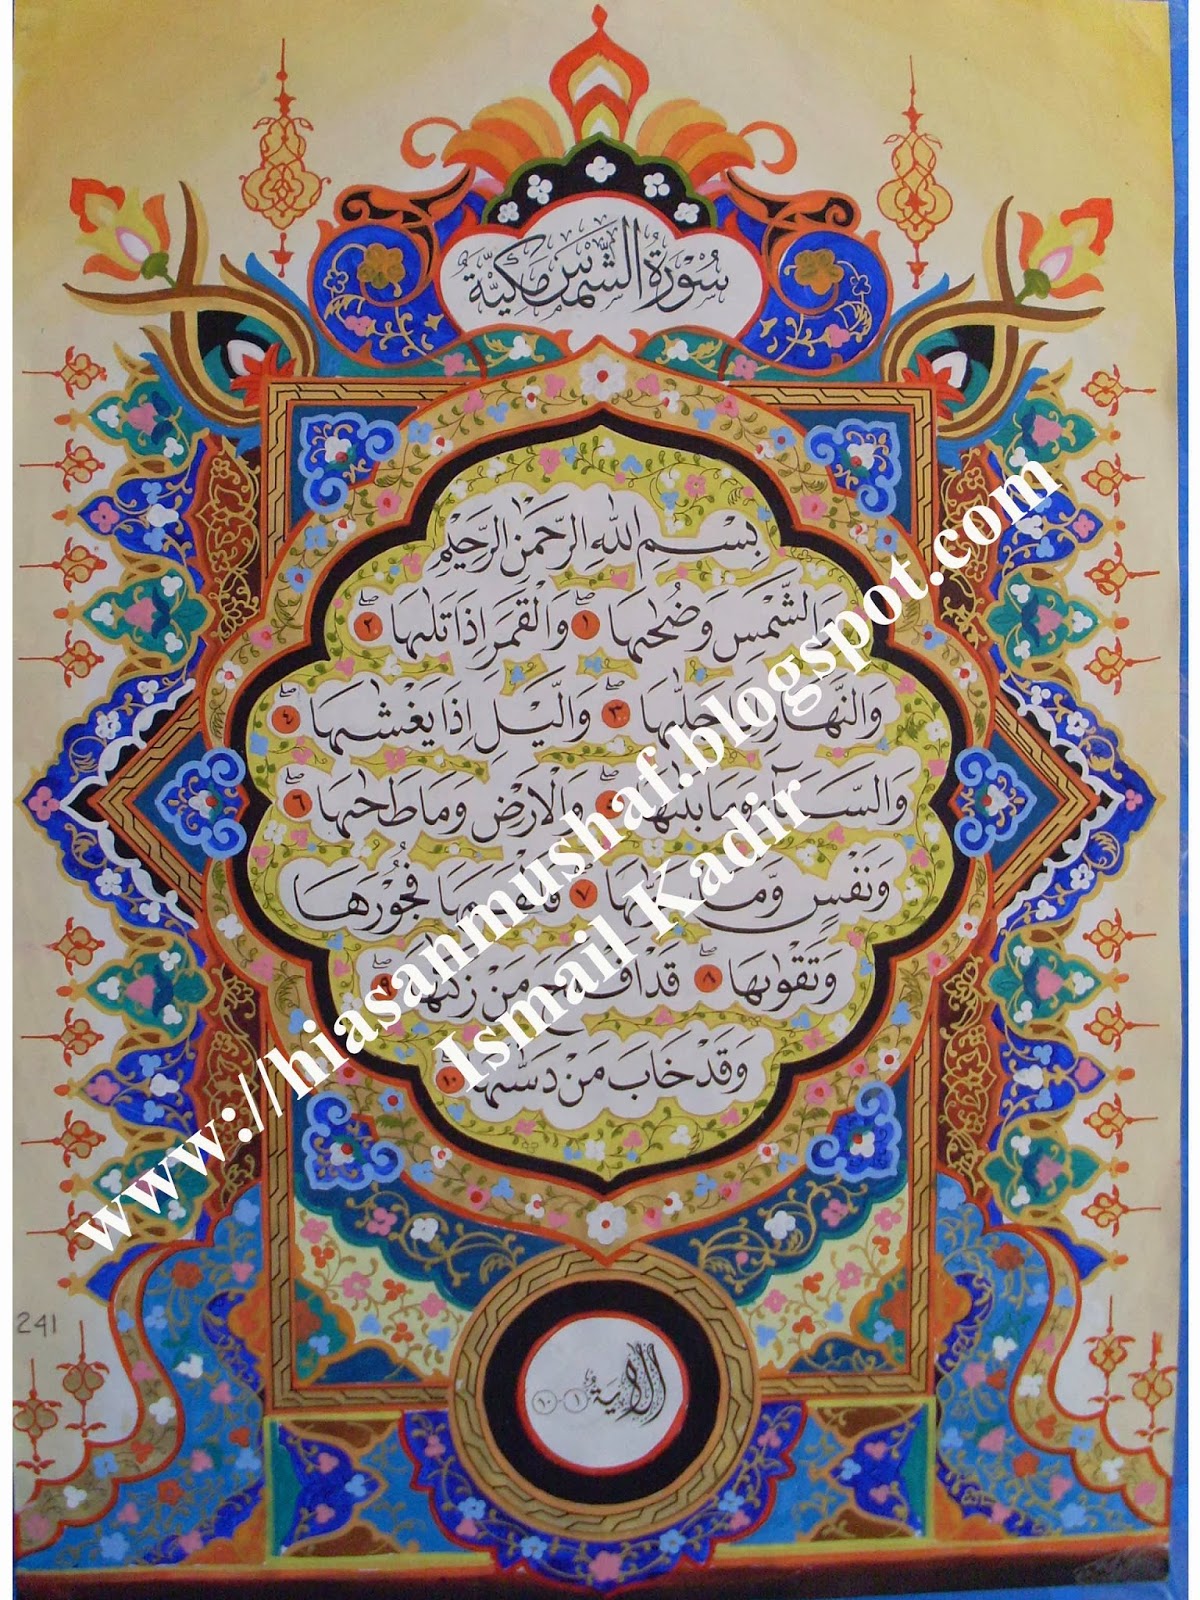 سُورَةُ الشَّمْسِ مَكِّيَّةٌ
بِسْمِ اللهِ الرَّحْمٰنِ الرَّحِيْمِ
وَالشَّمْسِ وَضُحٰىهَا ۖ ١ وَالْقَمَرِ اِذَا تَلٰىهَا ۖ ٢
وَالنَّهَارِ اِذَا جَلّٰىهَا ۖ ٣ وَالَّيْلِ اِذَا يَغْشٰىهَا ۖ ٤
وَالسَّمَاۤءِ وَمَا بَنٰىهَا ۖ ٥ وَالْاَرْضِ وَمَا طَحٰىهَا ۖ ٦
وَنَفْسٍ وَّمَا سَوّٰىهَا ۖ ٧ فَاَلْهَمَهَا فُجُوْرَهَا
وَتَقْوٰىهَا ۖ ٨ قَدْ اَفْلَحَ مَنْ زَكّٰىهَا ۖ ٩
وَقَدْ خَابَ مَنْ دَسّٰىهَا ۗ ١٠
الاٰية ١ - ١٠
241
www://hiasanmushaf.blogspot.com
Ismail Kadir